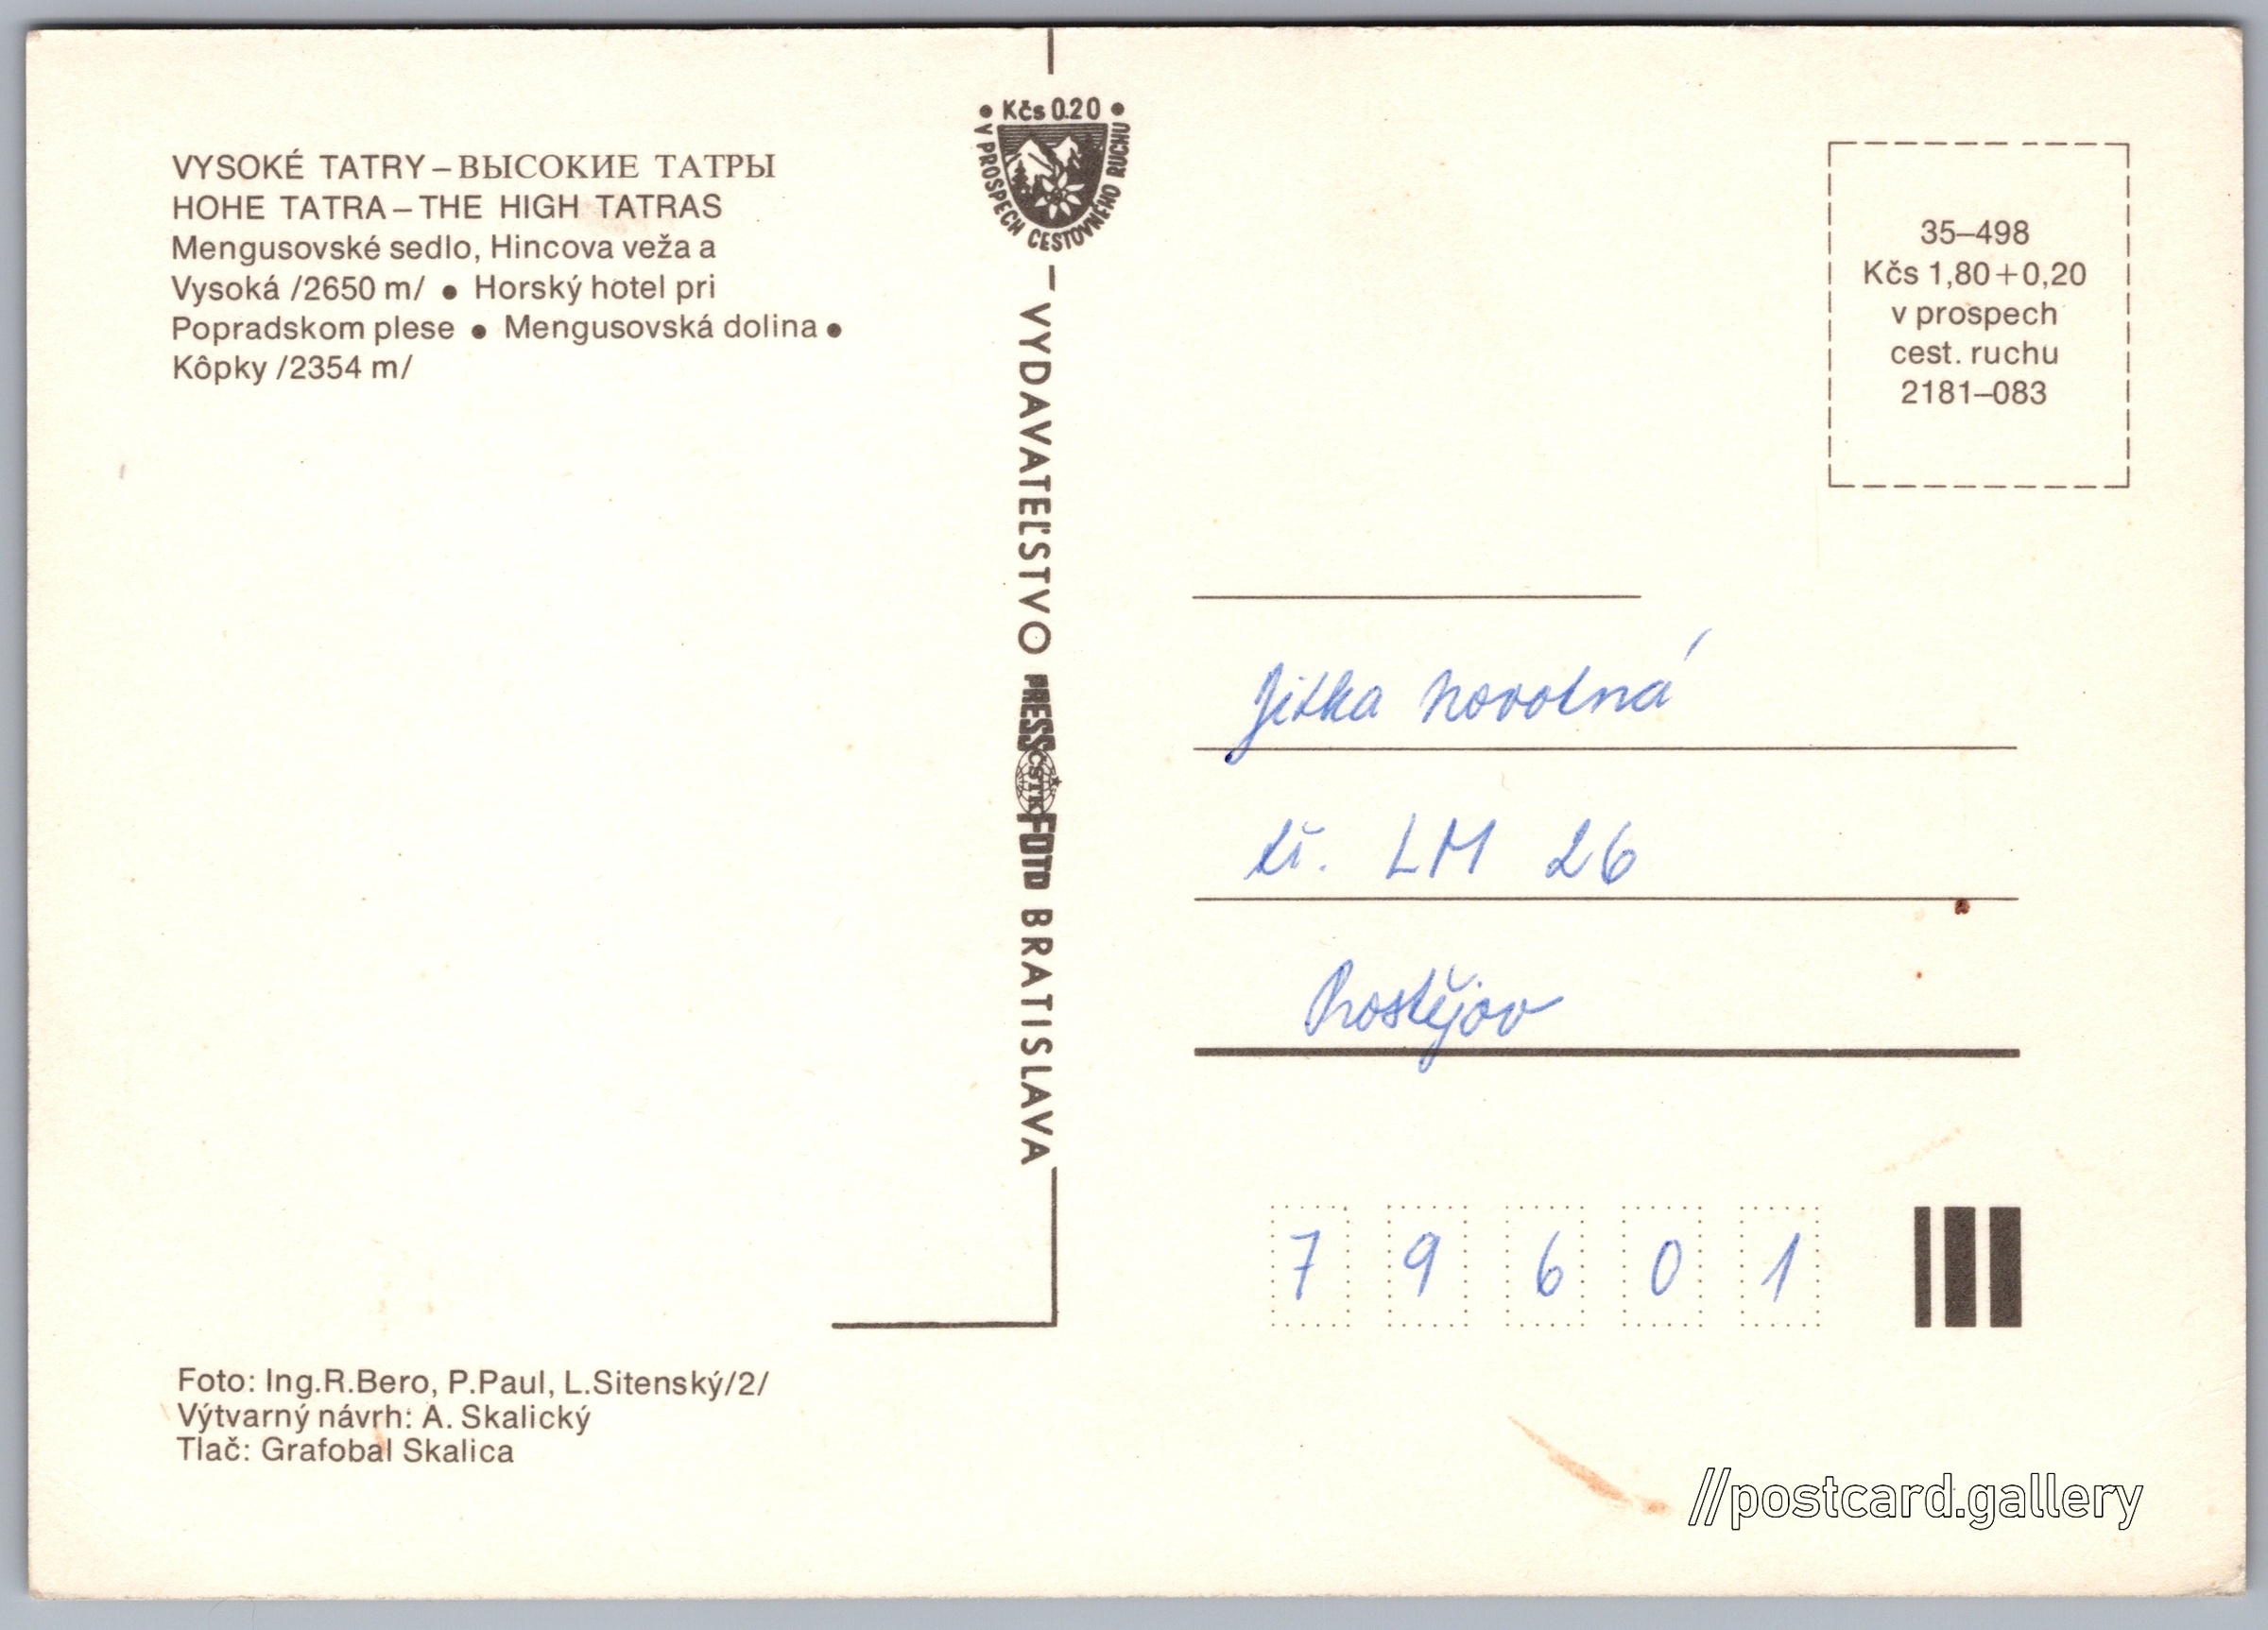 VYSOKÉ TATRY – ВЫСОКИЕ ТАТРЫ
HOHE TATRA – THE HIGH TATRAS
Mengusovské sedlo, Hincova veža a
Vysoká /2650 m/ ● Horský hotel pri
Popradskom plese ● Mengusovská dolina ●
Kôpky /2354 m/
Foto: Ing.R.Bero, P.Paul, L.Sitenský/2/
Výtvarný návrh: A. Skalický
Tlač: Grafobal Skalica
• Kčs 0.20 •
V PROSPECH CESTOVNÉHO RUCHU
– VYDAVATEĽSTVO PRESSČSTKFOTO BRATISLAVA
35–498
Kčs 1,80+0,20
v prospech
cest. ruchu
2181–083
Jitka Novotná
tř. LM 26
Prostějov
7 9 6 0 1
//postcard.gallery